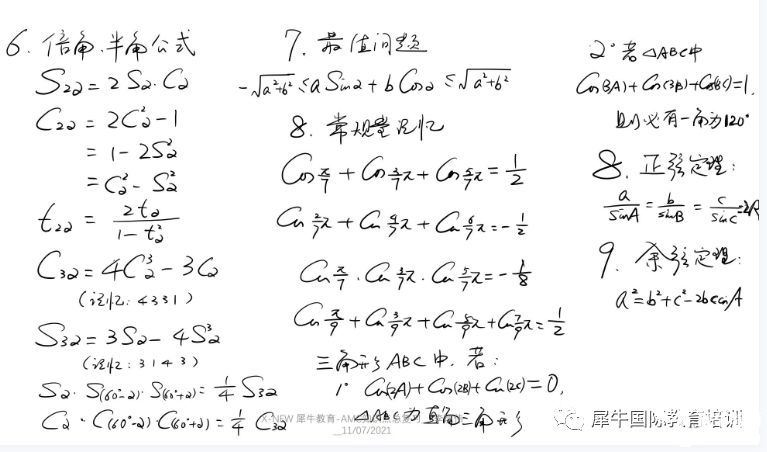 6. 倍角、半角公式
S₂α = 2 Sα · Cα
C₂α = 2C²α - 1
= 1 - 2S²α
= C²α - S²α
t₂α = 2tα / (1 - t²α)
C₃α = 4C³α - 3Cα
(记忆: 4331)
S₃α = 3Sα - 4S³α
(记忆: 3143)
Sα · S(60°-α) · S(60°+α) = 1/4 S₃α
Cα · C(60°-α) · C(60°+α) = 1/4 C₃α
7. 最值问题
-√(a²+b²) ≤ a Sinα + b Cosα ≤ √(a²+b²)
8. 常规量记忆
Cos π/7 + Cos 3/7 π + Cos 5/7 π = 1/2
Cos 2/7 π + Cos 4/7 π + Cos 6/7 π = -1/2
Cos π/7 · Cos 3/7 π · Cos 5/7 π = -1/8
Cos π/9 + Cos 3/9 π + Cos 5/9 π + Cos 7/9 π = 1/2
三角形 ABC 中, 若:
1° Cos(2A) + Cos(2B) + Cos(2C) = 0,
△ABC 为 三角形
2° 若 △ABC 中
Cos(3A) + Cos(3B) + Cos(3C) = 1,
则必有一角为 120°
8. 正弦定理:
a/sinA = b/sinB = c/sinC = 2R
9. 余弦定理:
a² = b² + c² - 2bccosA
X-NEW 犀牛教育-AM
_11/07/2021
犀牛国际教育培训